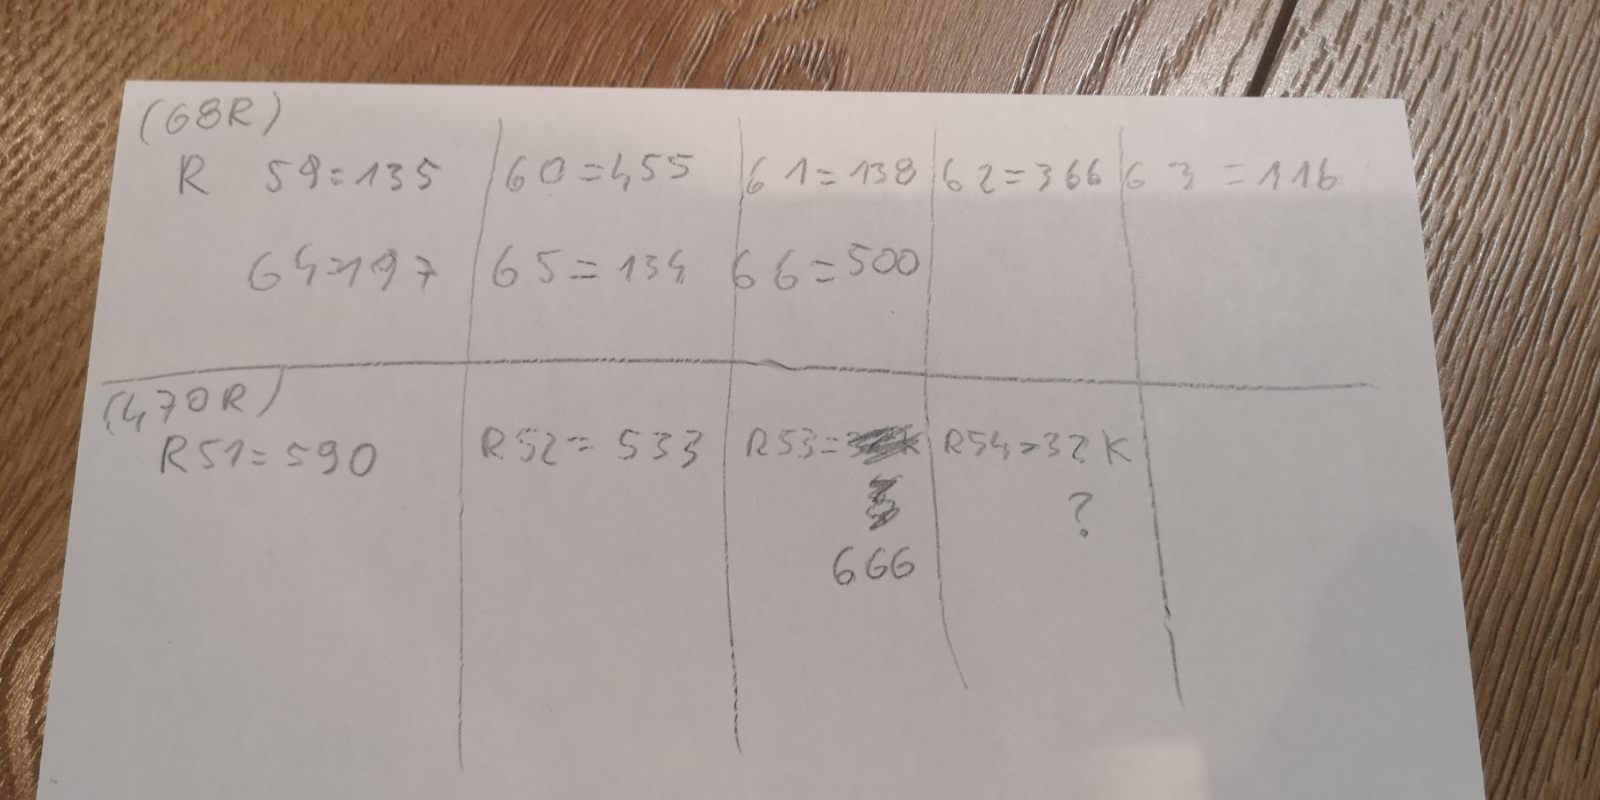 (68R)
R 59=135 60=455 61=138 62=366 63=116
64=197 65=134 66=500
(470R)
R51=590 R52=533 R53= R54=32K
?
666